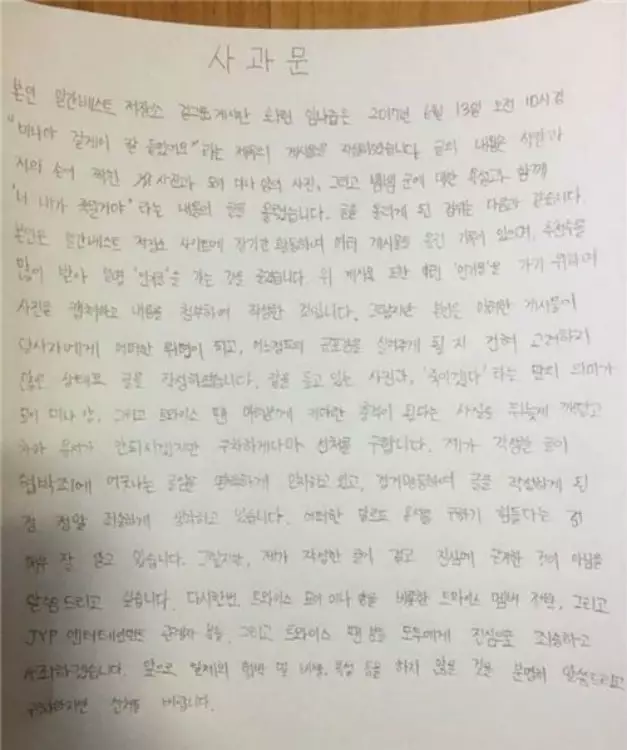 사과문
본인 일간베스트 저장소 걸그룹게시판 회원 은 2017년 6월 13일 오전 10시경
라는 제목의 게시물을 작성하였습니다. 글의 내용은 식칼과
시의 손에 적힌 사진과 묘이 미나 양의 사진, 그리고 에 대한 욕설과 함께
라는 내용의 글을 올렸습니다. 글을 올리게 된 경위는 다음과 같습니다.
본인은 일간베스트 저장소 사이트에 장기간 활동하며 여러 게시물을 올린 기록이 있으며, 추천수를
많이 받아 일명 가는 것을 즐겼습니다. 위 게시물 또한 가기 위하여
사진을 캡쳐하고 내용을 첨부하여 작성한 것입니다. 그렇지만 본인은 이러한 게시물이
당사자에게 어떠한 위협이 되고, 어느정도의 공포감을 심어주게 될 지 전혀 고려하지
않은 상태로 글을 작성하였습니다. 칼을 들고 있는 사진과, '죽이겠다' 라는 단어 의미가
묘이 미나 양, 그리고 트와이스 팬 커다란 충격이 된다는 사실을 뒤늦게 깨닫고
안되시겠지만 구차하게나마 선처를 구합니다. 제가 작성한 글이
협박죄에 어긋나는 글임을 인지하고 있고, 글을 작성하게 된
점 정말 죄송하게 생각하고 있습니다. 어떠한 말로도 용서를 구하기 힘들다는 것
매우 잘 알고 있습니다. 그렇지만, 제가 작성한 글이 결코 진심에 것이 아님을
말씀드리고 싶습니다. 다시한번, 트와이스 묘이 미나 양을 비롯한 트와이스 멤버 전원, 그리고
JYP 엔터테인먼트 관계자 분들, 그리고 트와이스 팬 분들 모두에게 진심으로 죄송하고
사죄하겠습니다. 앞으로 일체의 협박 및 비방, 욕설 등을 하지 않을 것을 분명히 말씀드리고
선처를 바랍니다.